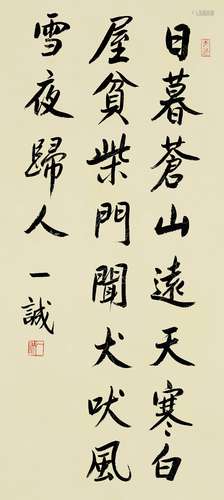 日暮蒼山遠天寒白
屋貧柴門聞犬吠風
雪夜歸人
一誠